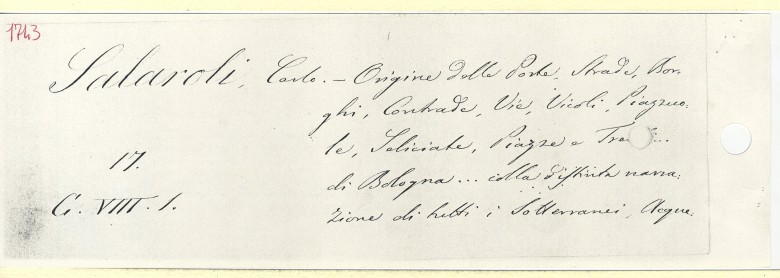 1743
Salaroli, Carlo. — Origine delle Porte, Strade, Bor-
ghi, Contrade, Vie, Vicoli, Piazzuo-
le, Seliciate, Piazze e
17.
di Bologna... colla distinta narra-
G. VIII. 1.
zione di tutti i Sotterranei, Acque-